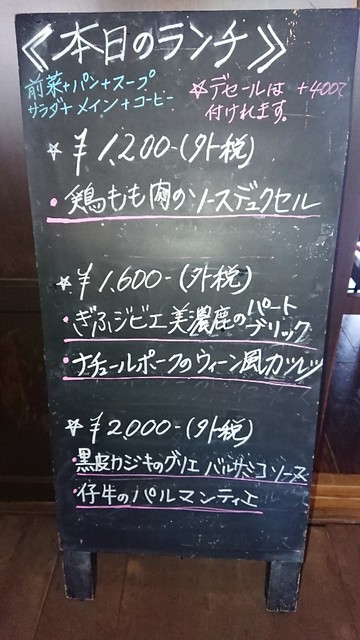 ≪本日のランチ≫
前菜+パン+スープ
サラダ+メイン+コーヒー
☆デセールは +400で
付けれます。
☆¥1,200-(外税)
・鶏もも肉のソースデュクセル
☆¥1,600-(外税)
・ぎふジビエ美濃鹿のパートブリック
・ナチュールポークのウィーン風カツレツ
☆¥2,000-(外税)
・黒皮カジキのグリエ バルサミコソース
・仔牛のパルマンティエ